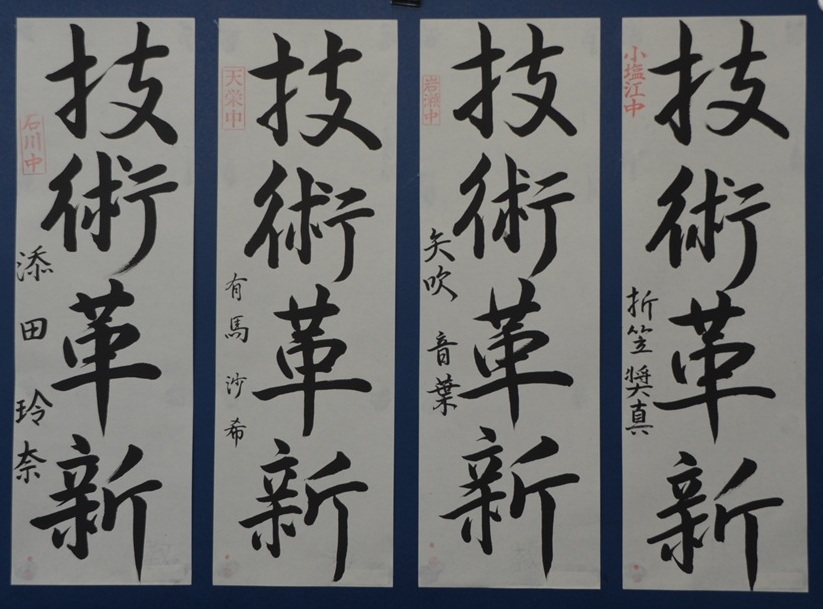 小塩江中
技術革新
折笠奨真
岩瀬中
技術革新
矢吹 音葉
天栄中
技術革新
有馬 沙希
石川中
技術革新
添田 玲奈